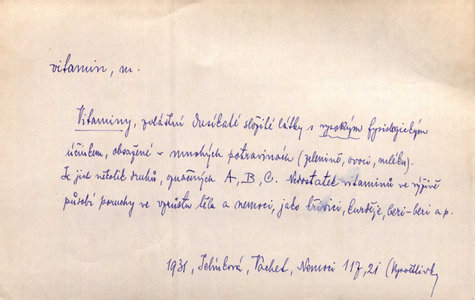 vitamin, m.
Vitaminy, zvláštní dusíkaté složité látky s vysokým fysiologickým
účinkem, obsažené v mnohých potravinách (zelenině, ovoci, mléku).
Je jich několik druhů, značených A, B, C. Nedostatek vitaminů ve výživě
působí poruchy ve vzrůstu těla a nemoci, jako křivici, kurděje, beri-beri a p.
1931, Jelínková, Nemoci 117, 21 (Vysvětlivky